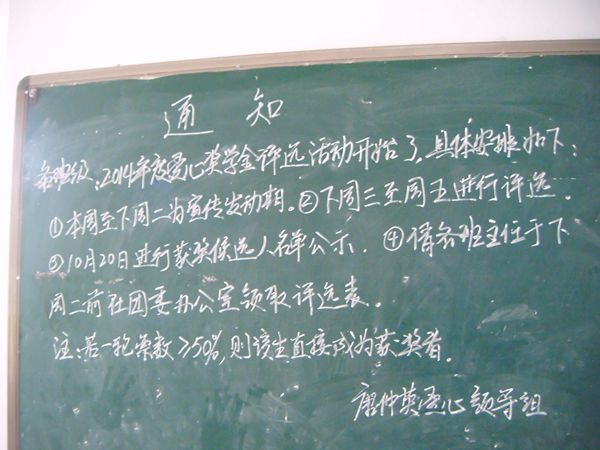 通知
各班级:2014年度爱心奖学金评选活动开始了,具体安排如下:
①本周至下周二为宣传发动期.②下周三至周五进行评选.
③10月20日进行获奖候选人名单公示.④请各班主任于下
周二前往团委办公室领取评选表。
注:若一轮票数>50%,则该生直接成为获奖者.
唐仲英爱心领导组